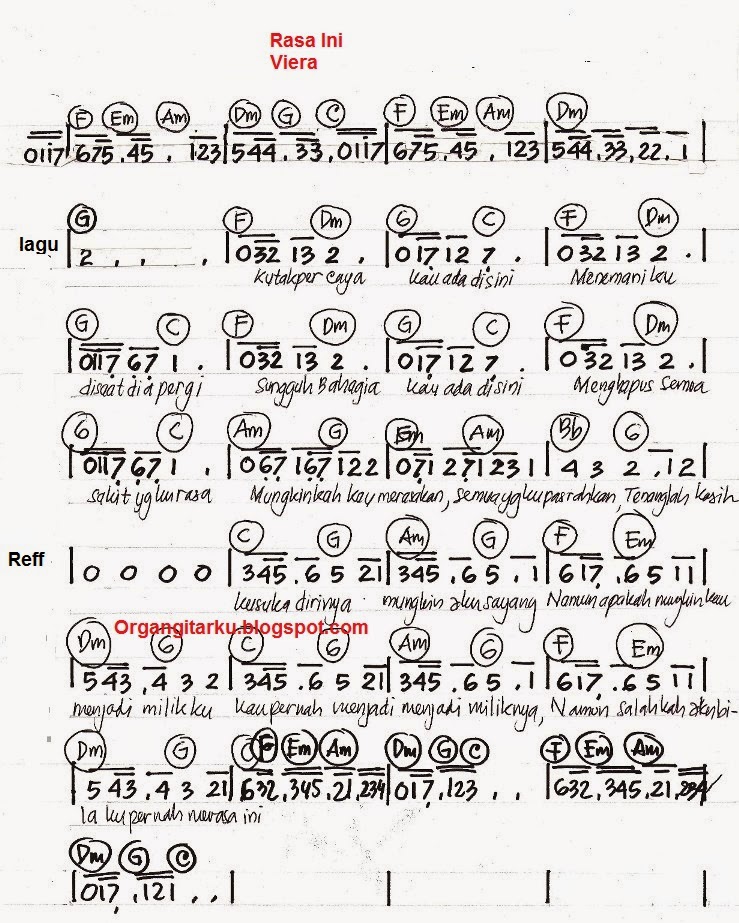 Rasa Ini
Viera
F Em Am Dm G C F Em Am Dm
0117|675.45 . 123|544.33.0117|675.45 . 123|544.33.22.1|
G F Dm G C F Dm
lagu |2 . . .|032 13 2 .|017 12 7 .|032 13 2 .|
kutakpercaya kau ada disini Menemaniku
G C F Dm G C F Dm
|0117 67 1 .|032 13 2 .|017 12 7 .|032 13 2 .|
disaat dia pergi Sungguh Bahagia kau ada disini Menghapus Semua
G C Am G Em Am Bb G
|0117 67 1 .|067 167 122|071 271 231|4 3 2 .12|
Sakit yg kurasa Mungkinkah kau merasakan, Semua yg ku pasrahkan, Tenanglah kasih
C G Am G F Em
Reff |0 0 0 0|345 .6 5 21|345 .6 5 .1|617 .6 5 11|
kusuka dirinya mungkin aku sayang Namun apakah mungkin kau
Organgitarku.blogspot.com
Dm G C G Am G F Em
|543 .4 3 2|345 .6 5 21|345 .6 5 .1|617 .6 5 11|
menjadi milikku kau pernah menjadi menjadi miliknya, Namun salahkah aku bi-
Dm G C F Em Am Dm G C F Em Am
|543 .4 3 21|632.345.21.234|017.123 . .|632.345.21.234|
la ku pernah merasa ini
Dm G C
|017 .121 . .| | | |